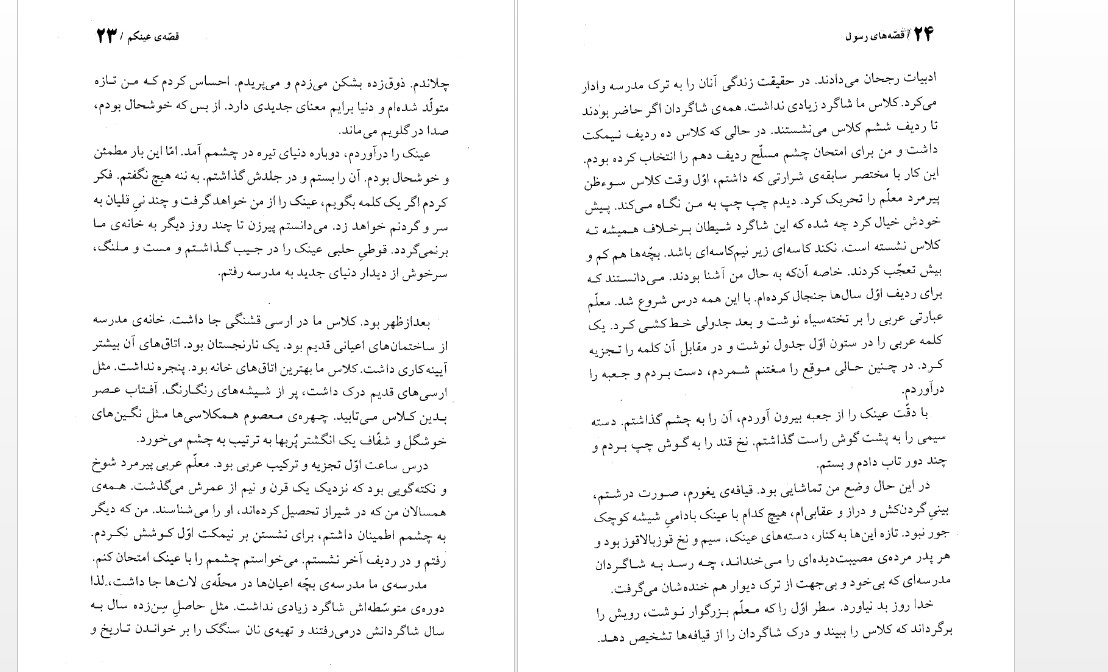 قصّه‌ی عینکم / ۲۳
چلاندم. ذوق‌زده بشکن می‌زدم و می‌پریدم. احساس کردم که من تازه
متولّد شده‌ام و دنیا برایم معنای جدیدی دارد. از بس که خوشحال بودم،
صدا در گلویم می‌ماند.
عینک را درآوردم، دوباره دنیای تیره در چشمم آمد. امّا این بار مطمئن
و خوشحال بودم. آن را بستم و در جلدش گذاشتم. به ننه هیچ نگفتم. فکر
کردم اگر یک کلمه بگویم، عینک را از من خواهد گرفت و چند نیِ قلیان به
سر و گردنم خواهد زد. می‌دانستم پیرزن تا چند روز دیگر به خانه‌ی ما
برنمی‌گردد. قوطیِ حلبی عینک را در جیب گذاشتم و مست و ملنگ،
سرخوش از دیدار دنیای جدید به مدرسه رفتم.
بعدازظهر بود. کلاس ما در ارسی قشنگی جا داشت. خانه‌ی مدرسه
از ساختمان‌های اعیانی قدیم بود. یک نارنجستان بود. اتاق‌های آن بیشتر
آیینه‌کاری داشت. کلاس ما بهترین اتاق‌های خانه بود. پنجره نداشت. مثل
ارسی‌های قدیم درک داشت، پر از شیشه‌های رنگارنگ. آفتاب عصر
بدین کلاس می‌تابید. چهره‌ی معصوم همکلاسی‌ها مثل نگین‌های
خوشگل و شفّاف یک انگشتر پُربها به ترتیب به چشم می‌خورد.
درس ساعت اوّل تجزیه و ترکیب عربی بود. معلّم عربی پیرمرد شوخ
و نکته‌گویی بود که نزدیک یک قرن و نیم از عمرش می‌گذشت. همه‌ی
همسالان من که در شیراز تحصیل کرده‌اند، او را می‌شناسند. من که دیگر
به چشمم اطمینان داشتم، برای نشستن بر نیمکت اوّل کوشش نکردم.
رفتم و در ردیف آخر نشستم. می‌خواستم چشمم را با عینک امتحان کنم.
مدرسه‌ی ما مدرسه‌ی بچّه اعیان‌ها در محلّه‌ی لات‌ها جا داشت، لذا
دوره‌ی متوسّطه‌اش شاگرد زیادی نداشت. مثل حاصلِ سِن‌زده سال به
سال شاگردانش درمی‌رفتند و تهیه‌ی نان سنگک را بر خواندن تاریخ و
۲۴ / قصّه‌های رسول
ادبیات رجحان می‌دادند. در حقیقت زندگی آنان را به ترک مدرسه وادار
می‌کرد. کلاس ما شاگرد زیادی نداشت. همه‌ی شاگردان اگر حاضر بودند
تا ردیف ششم کلاس می‌نشستند. در حالی که کلاس ده ردیف نیمکت
داشت و من برای امتحان چشم مسلّح ردیف دهم را انتخاب کرده بودم.
این کار با مختصر سابقه‌ی شرارتی که داشتم، اوّل وقت کلاس سوءظن
پیرمرد معلّم را تحریک کرد. دیدم چپ چپ به من نگاه می‌کند. پیش
خودش خیال کرد چه شده که این شاگرد شیطان برخلاف همیشه ته
کلاس نشسته است. نکند کاسه‌ای زیر نیم‌کاسه‌ای باشد. بچّه‌ها هم کم و
بیش تعجّب کردند. خاصه آن‌که به حال من آشنا بودند. می‌دانستند که
برای ردیف اوّل سال‌ها جنجال کرده‌ام. با این همه درس شروع شد. معلّم
عبارتی عربی را بر تخته‌سیاه نوشت و بعد جدولی خط‌کشی کرد. یک
کلمه عربی را در ستون اوّل جدول نوشت و در مقابل آن کلمه را تجزیه
کرد. در چنین حالی موقع را مغتنم شمردم، دست بردم و جعبه را
درآوردم.
با دقّت عینک را از جعبه بیرون آوردم، آن را به چشم گذاشتم. دسته
سیمی را به پشت گوش راست گذاشتم. نخ قند را به گوش چپ بردم و
چند دور تاب دادم و بستم.
در این حال وضع من تماشایی بود. قیافه‌ی یغورم، صورت درشتم،
بینیِ گردن‌کش و دراز و عقابی‌ام، هیچ کدام با عینک بادامیِ شیشه کوچک
جور نبود. تازه این‌ها به کنار، دسته‌های عینک، سیم و نخ قوزبالاقوز بود و
هر پدر مرده‌ی مصیبت‌دیده‌ای را می‌خنداند، چه رسد به شاگردان
مدرسه‌ای که بی‌خود و بی‌جهت از ترک دیوار هم خنده‌شان می‌گرفت.
خدا روز بد نیاورد. سطر اوّل را که معلّم بزرگوار نوشت، رویش را
برگرداند که کلاس را ببیند و درک شاگردان را از قیافه‌ها تشخیص دهد.